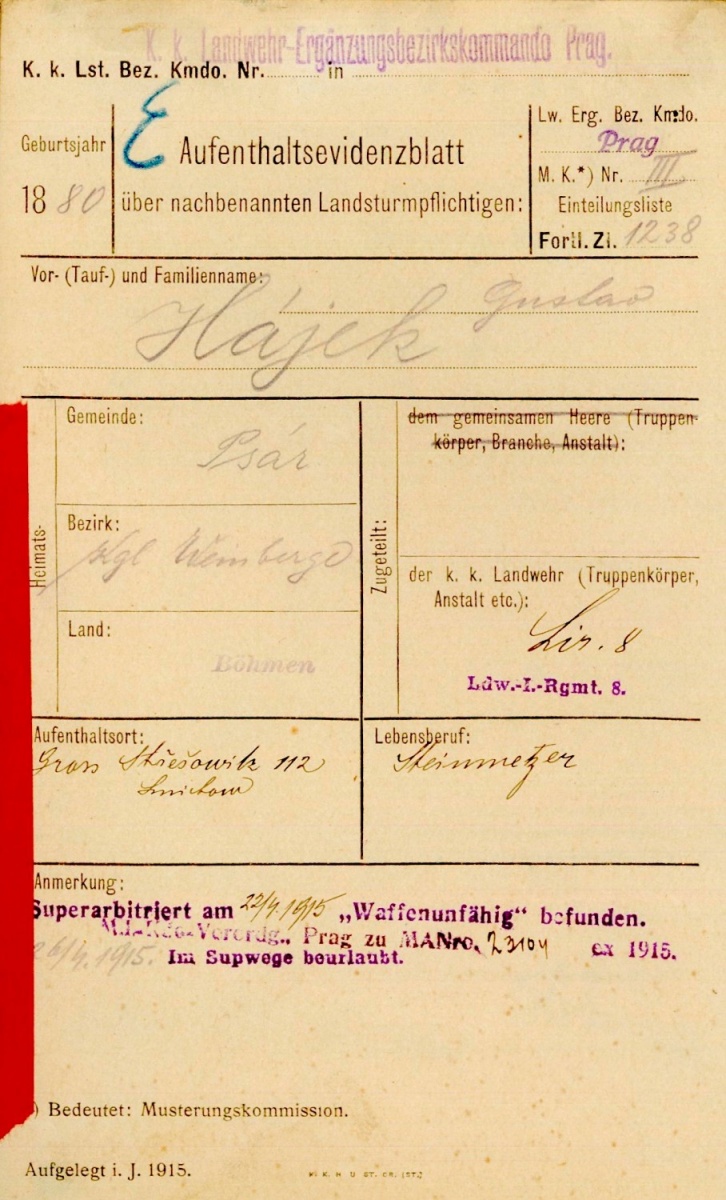 K. k. Landwehr-Ergänzungsbezirkskommando Prag.
K. k. Lst. Bez. Kmdo. Nr. in
Geburtsjahr
1880
E
Aufenthaltsevidenzblatt
über nachbenannten Landsturmpflichtigen:
Lw. Erg. Bez. Kmdo.
Prag
M. K.*) Nr. III
Einteilungsliste
Fortl. Zl. 1238
Vor- (Tauf-) und Familienname:
Gustav
Hájek
Heimats-
Gemeinde:
Psár
Bezirk:
Kgl Weinberge
Land:
Böhmen
Zugeteilt:
dem gemeinsamen Heere (Truppen-
körper, Branche, Anstalt):
der k. k. Landwehr (Truppenkörper,
Anstalt etc.):
Lir. 8
Ldw.-I.-Rgmt. 8.
Aufenthaltsort:
Gross Střešowitz 112
Smichow
Lebensberuf:
Steinmetzer
Anmerkung:
Superarbitriert am 22/4.1915 „Waffenunfähig“ befunden.
Prag zu MANro. 23104 ex 1915.
26/4.1915. Im Supwege beurlaubt.
) Bedeutet: Musterungskommission.
Aufgelegt i. J. 1915.